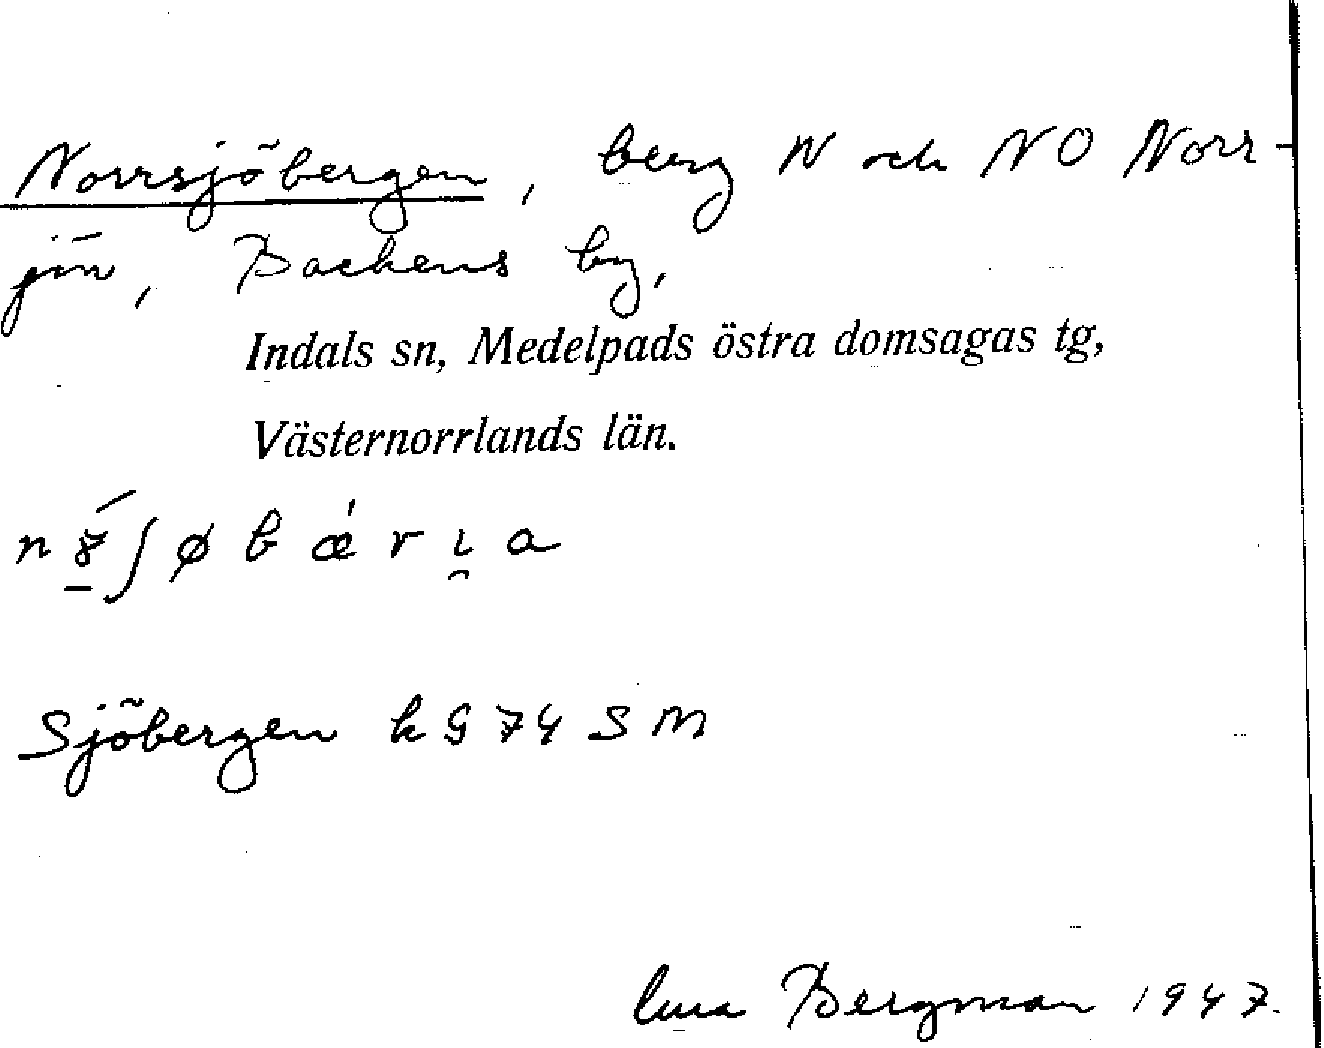 Norrsjöbergen, berg N och NO Norr-
jön, Backens by,
Indals sn, Medelpads östra domsagas tg,
Västernorrlands län.
Sjöbergen kG74SM
Bergman 1947.